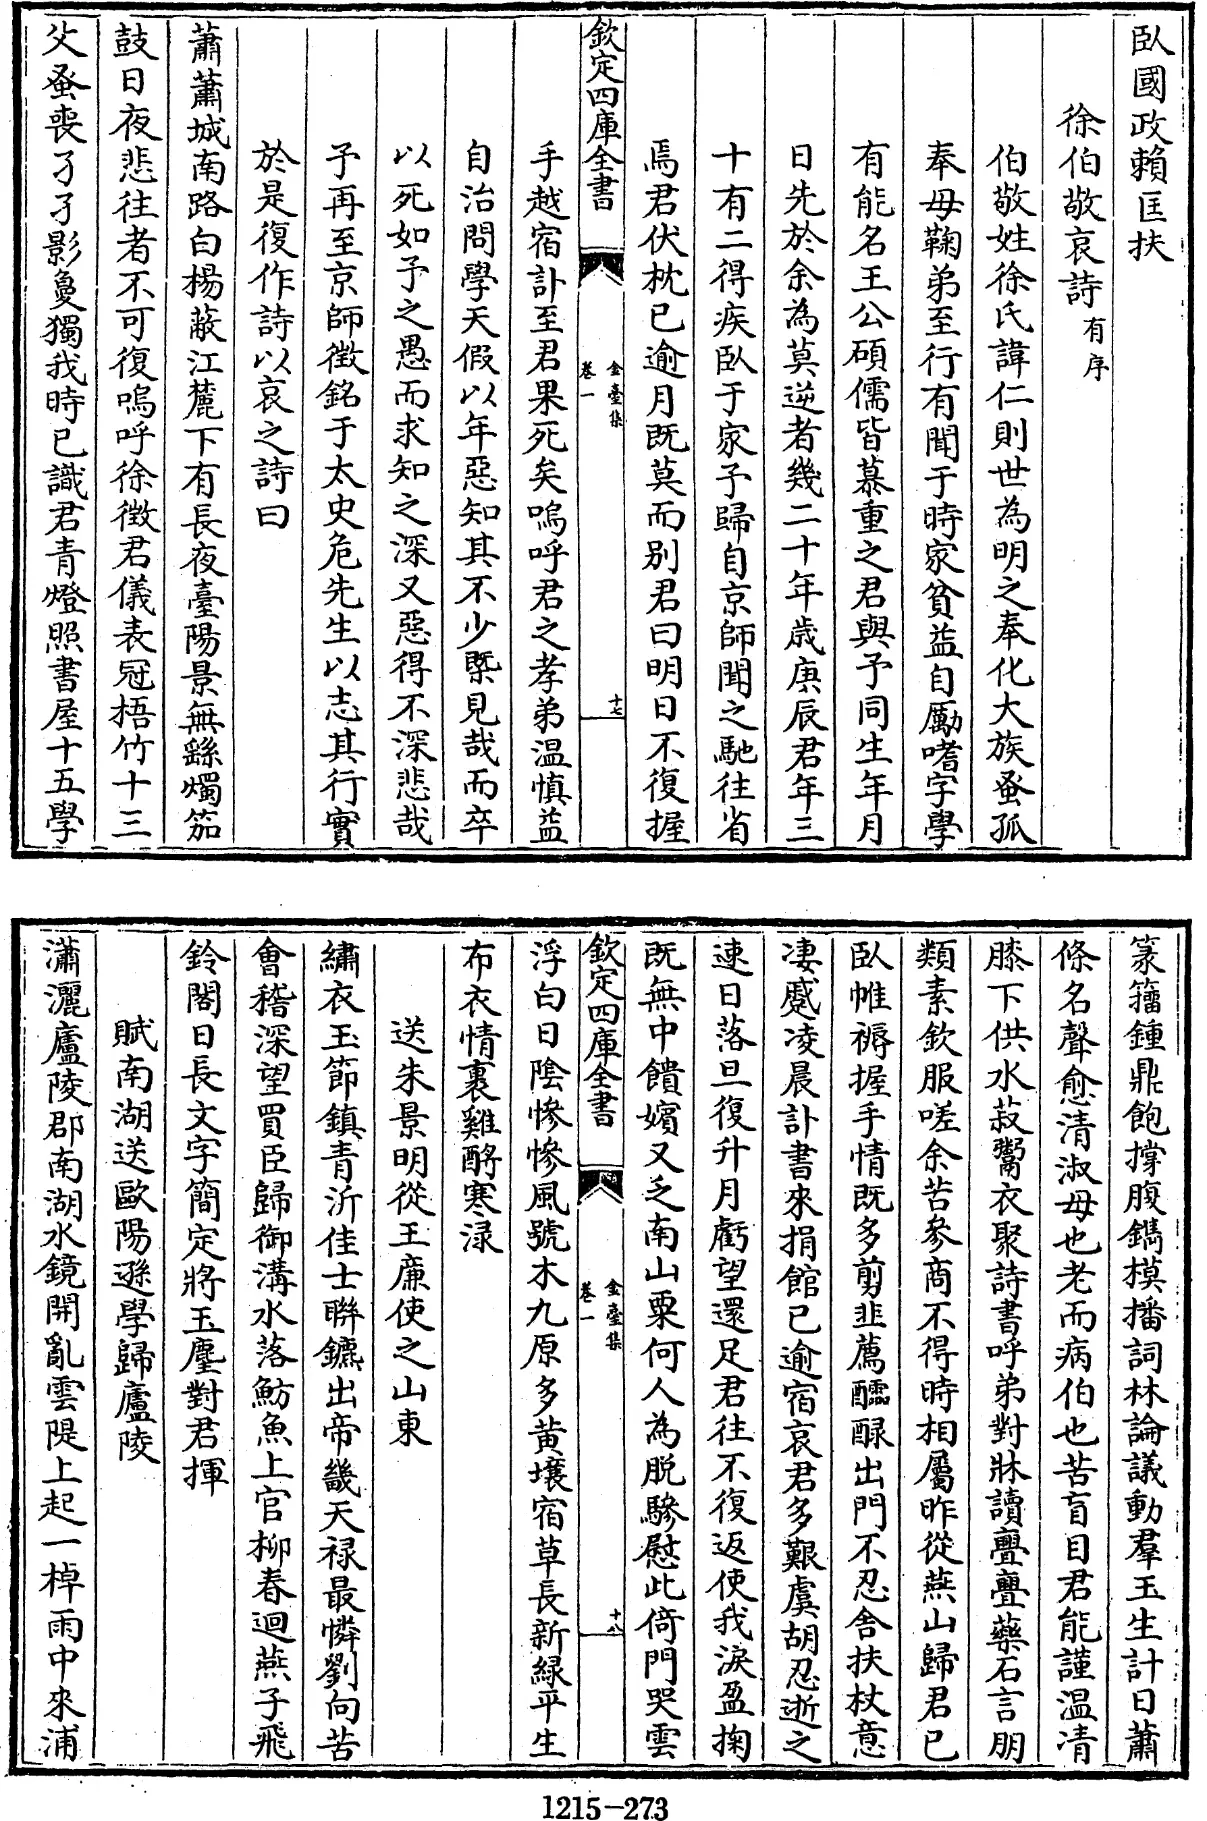 臥國政賴匡扶
徐伯敬哀詩有序
伯敬姓徐氏諱仁則世為明之奉化大族蚤孤
奉母鞠弟至行有聞于時家貧益自勵嗜字學
有能名王公碩儒皆慕重之君與予同生年月
日先於余為莫逆者幾二十年歲庚辰君年三
十有二得疾臥于家予歸自京師聞之馳往省
焉君伏枕已逾月既莫而别君曰明日不復握
欽定四庫全書
金臺集
卷一
十七
手越宿訃至君果死矣嗚呼君之孝弟溫慎益
自治問學天假以年惡知其不少槩見哉而卒
以死如予之愚而求知之深又惡得不深悲哉
予再至京師徴銘于太史危先生以志其行實
於是復作詩以哀之詩曰
蕭蕭城南路白楊蔽江麓下有長夜臺陽景無繇燭笳
鼓日夜悲往者不可復嗚呼徐徴君儀表冠梧竹十三
父蚤喪孑孑影敻獨我時已識君青燈照書屋十五學
篆籀鍾鼎飽撐腹鐫模播詞林論議動羣玉生計日蕭
條名聲愈清淑母也老而病伯也苦盲目君能謹溫凊
膝下供水菽鬻衣聚詩書呼弟對牀讀亹亹藥石言朋
類素欽服嗟余苦參商不得時相屬昨從燕山歸君已
臥帷褥握手情既多剪韭薦醽醁出門不忍舍扶杖意
凄蹙凌晨訃書來捐館已逾宿哀君多艱虞胡忍逝之
速日落旦復升月虧望還足君往不復返使我淚盈掬
既無中饋嬪又乏南山粟何人為脱驂慰此倚門哭雲
欽定四庫全書
金臺集
卷一
十八
浮白日陰慘慘風號木九原多黄壤宿草長新緑平生
布衣情裹雞酹寒渌
送朱景明從王廉使之山東
繡衣玉節鎮青沂佳士聯鑣出帝畿天禄最憐劉向苦
會稽深望買臣歸御溝水落魴魚上官柳春迴燕子飛
鈴閣日長文字簡定將玉麈對君揮
賦南湖送歐陽遜學歸廬陵
瀟灑廬陵郡南湖水鏡開亂雲隄上起一棹雨中來浦
1215-273